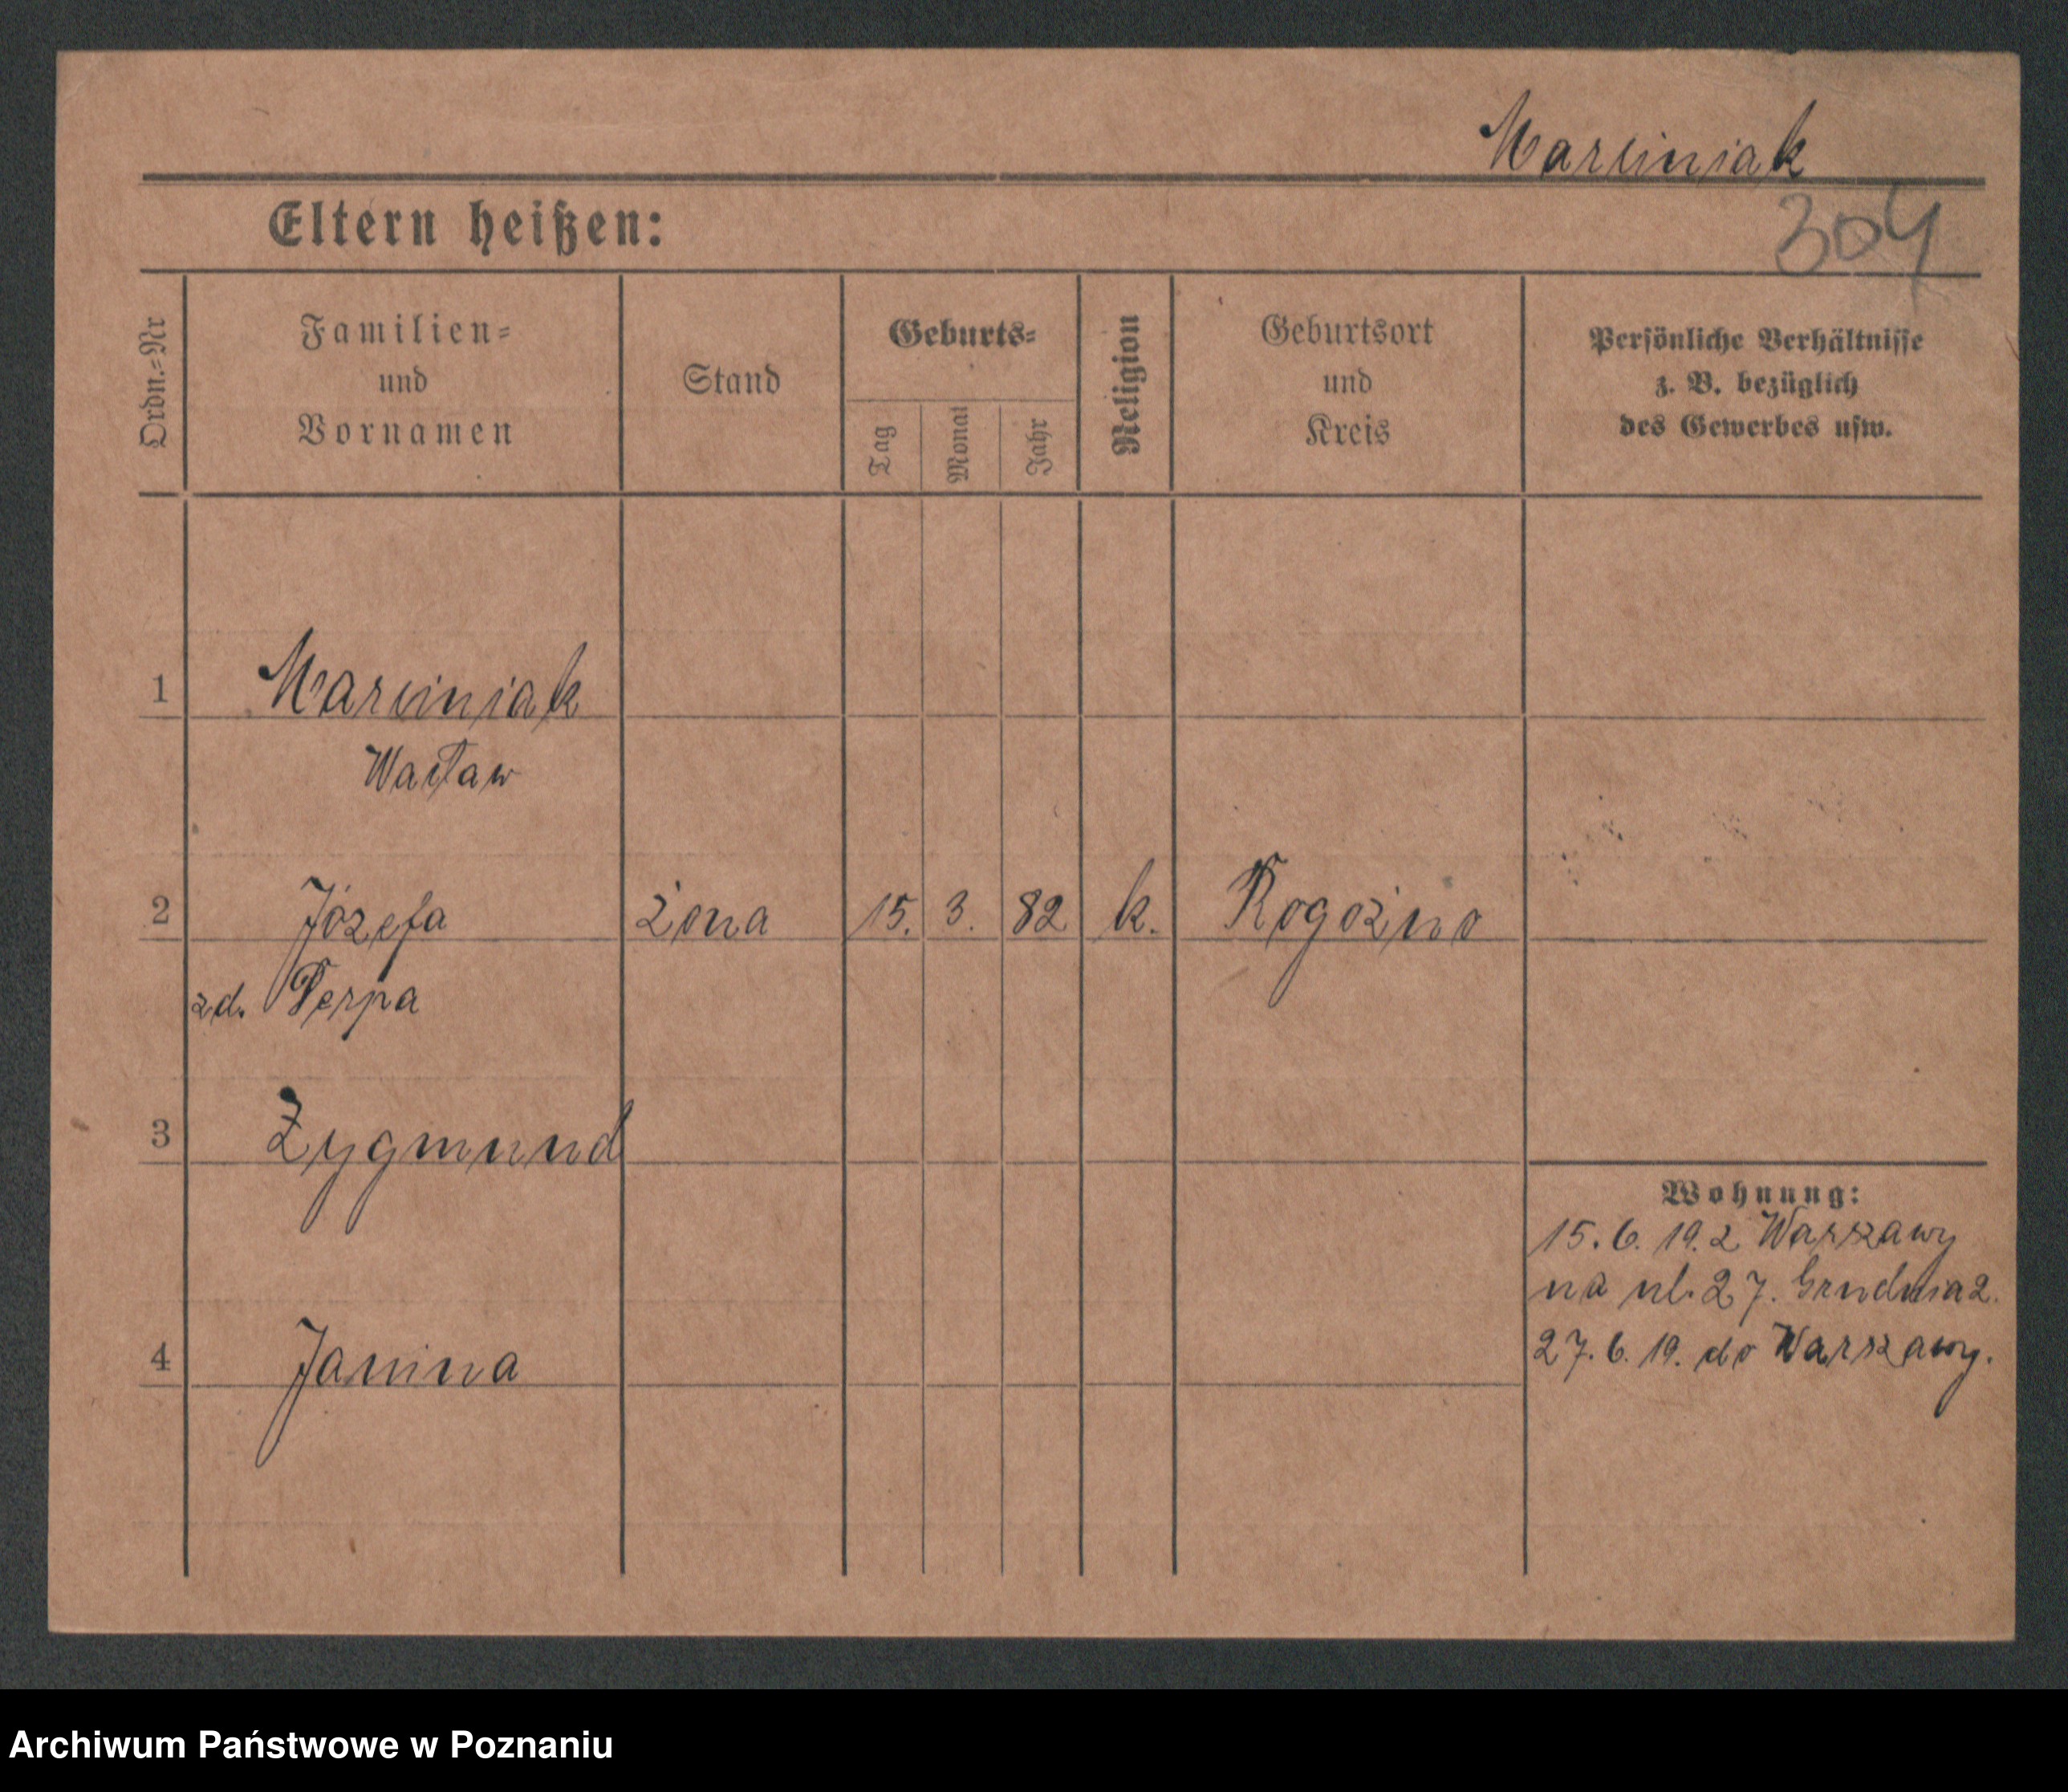 Marciniak
Eltern heißen:
304
Ordn.-Nr
Familien-
und
Vornamen
Stand
Geburts-
Tag
Monat
Jahr
Religion
Geburtsort
und
Kreis
Persönliche Verhältnisse
z. B. bezüglich
des Gewerbes usw.
1 Marciniak
Wacław
2 Józefa żona 15. 3. 82 k. Rogoźno
zd. Perpa
3 Zygmund
4 Janina
Wohnung:
15. 6. 19. z Warszawy
na ul. 27. Grudnia 2.
27. 6. 19. do Warszawy.
Archiwum Państwowe w Poznaniu